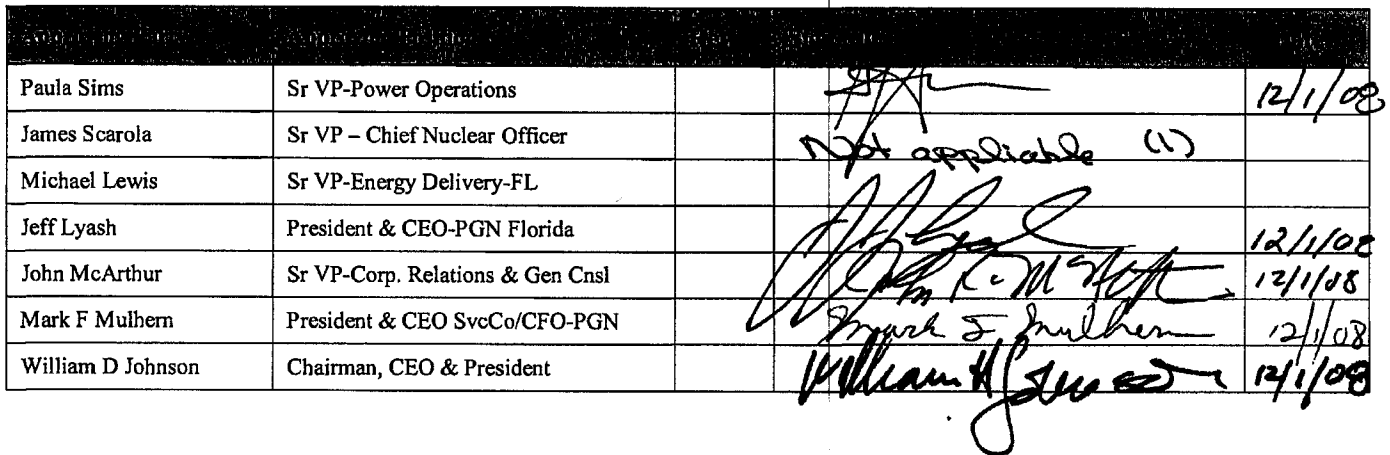 Paula Sims Sr VP-Power Operations 12/1/08
James Scarola Sr VP – Chief Nuclear Officer Not applicable (1)
Michael Lewis Sr VP-Energy Delivery-FL
Jeff Lyash President & CEO-PGN Florida 12/1/08
John McArthur Sr VP-Corp. Relations & Gen Cnsl 12/1/08
Mark F Mulhern President & CEO SvcCo/CFO-PGN Mark F Mulhern 12/1/08
William D Johnson Chairman, CEO & President William D Johnson 12/1/08